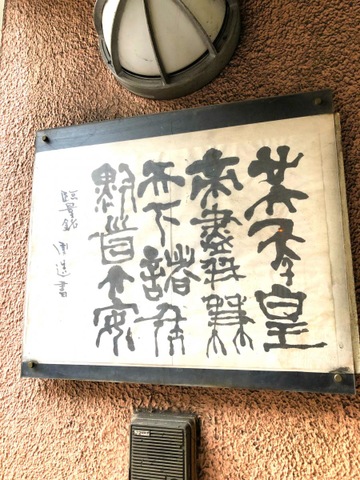 廿六年皇
帝盡并兼
天下諸侯
黔首大安
臨量銘